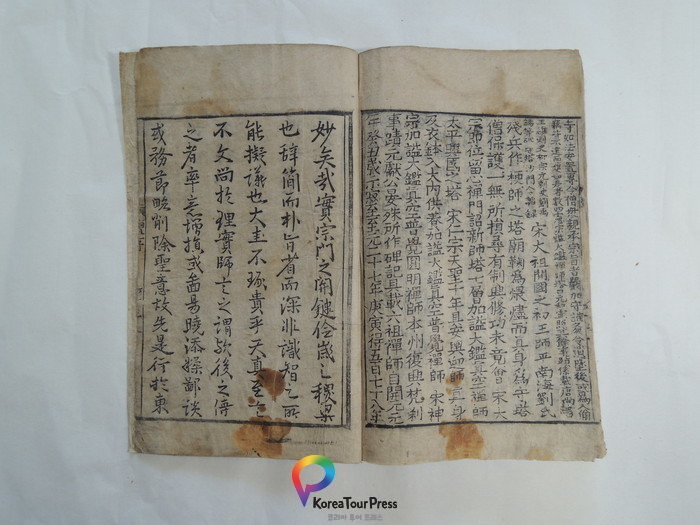 宋太祖開國之初王師平南海劉氏
殘兵作梗師之塔廟鞠為煨燼而真身為守塔
僧保護一無所損尋有制興修功未竟會宋太
宗即位留心禪門詔新師塔七層加謚大鑑真空禪師
太平興國之塔 宋仁宗天聖十年具安輿迎師真身
及衣鉢入大內供養加謚大鑑真空普覺禪師 宋神
宗加謚大鑑真空普覺圓明禪師本州復興梵刹
事蹟元獻公晏殊所作碑記具載六祖禪師自開元元
年癸丑歲示寂至至元二十七年庚寅得五百七十八年
妙矣哉實宗門之関鍵儉歲之稷梁
也辭簡而朴旨省而深非識智之所
能擬議也大圭不琢貴乎天真至言
不文尚於理實師言之謂歟後之傳
之者率意增損或啚易曉添糅鄙談
或務節略削除聖意故先是行於東
KoreaTourPress
코리아 투어 프레스